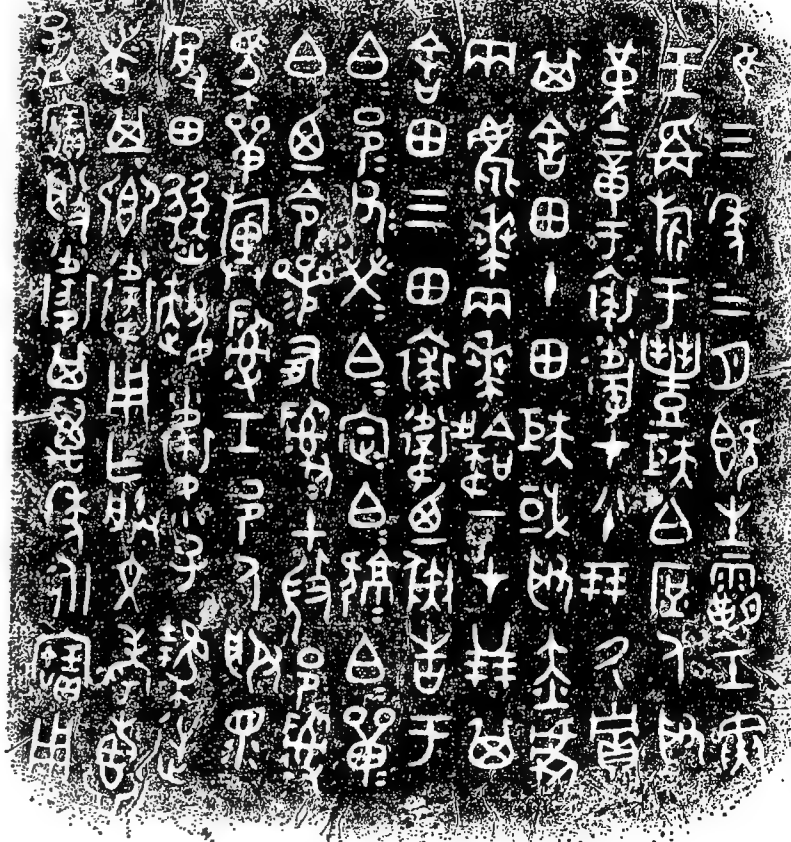 隹三年三月既生霸壬寅
王爯旂于豐矩白庶人取
堇章于裘衛才八十朋氒貯
其舍田十田矩或取赤虎
兩麀𠦪兩𠦪韐一才廿朋其
舍田三田裘衛廼彘告于
白邑父榮白定白𤞷白單
白廼令參有𤔲𤔲土微邑𤔲
馬單旟𤔲工邑人服眔
受田豳趞衛小子𦅫逆
者其鄉衛用乍朕文考惠
孟寶般衛其萬年永寶用